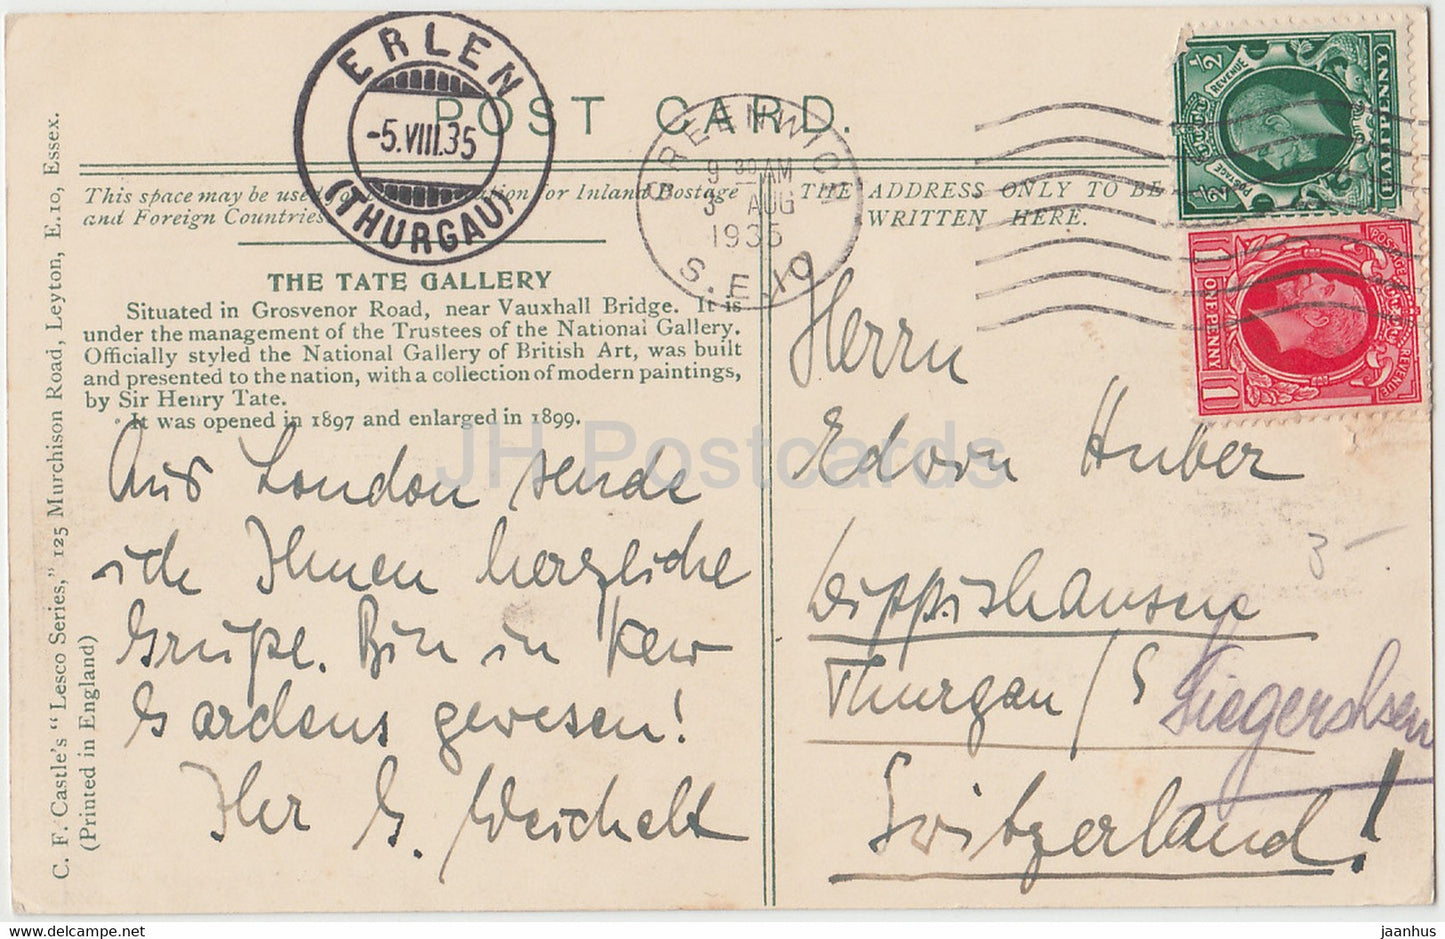 ERLEN
-5.VIII.35
(THURGAU)
POST CARD.
GREENWICH
9 30 AM
3 AUG
1935
S.E.10
½ POSTAGE REVENUE ½
HALFPENNY
POSTAGE REVENUE
1 ONE PENNY 1
This space may be used for Inland Postage
and Foreign Countries
THE ADDRESS ONLY TO BE
WRITTEN HERE.
THE TATE GALLERY
Situated in Grosvenor Road, near Vauxhall Bridge. It is
under the management of the Trustees of the National Gallery.
Officially styled the National Gallery of British Art, was built
and presented to the nation, with a collection of modern paintings,
by Sir Henry Tate.
It was opened in 1897 and enlarged in 1899.
Aus London sende
ich Ihnen herzliche
Grüße. Bin in Kew
Gardens gewesen!
Ihr G. Weichelt
Herrn
Edwin Huber
Dippishausen
Thurgau / S
Siegershsen
Switzerland!
3 –
C. F. Castle's "Lesco Series," 125 Murchison Road, Leyton, E.10, Essex.
(Printed in England)
JH Postcards
www.delcampe.net
jaanhus